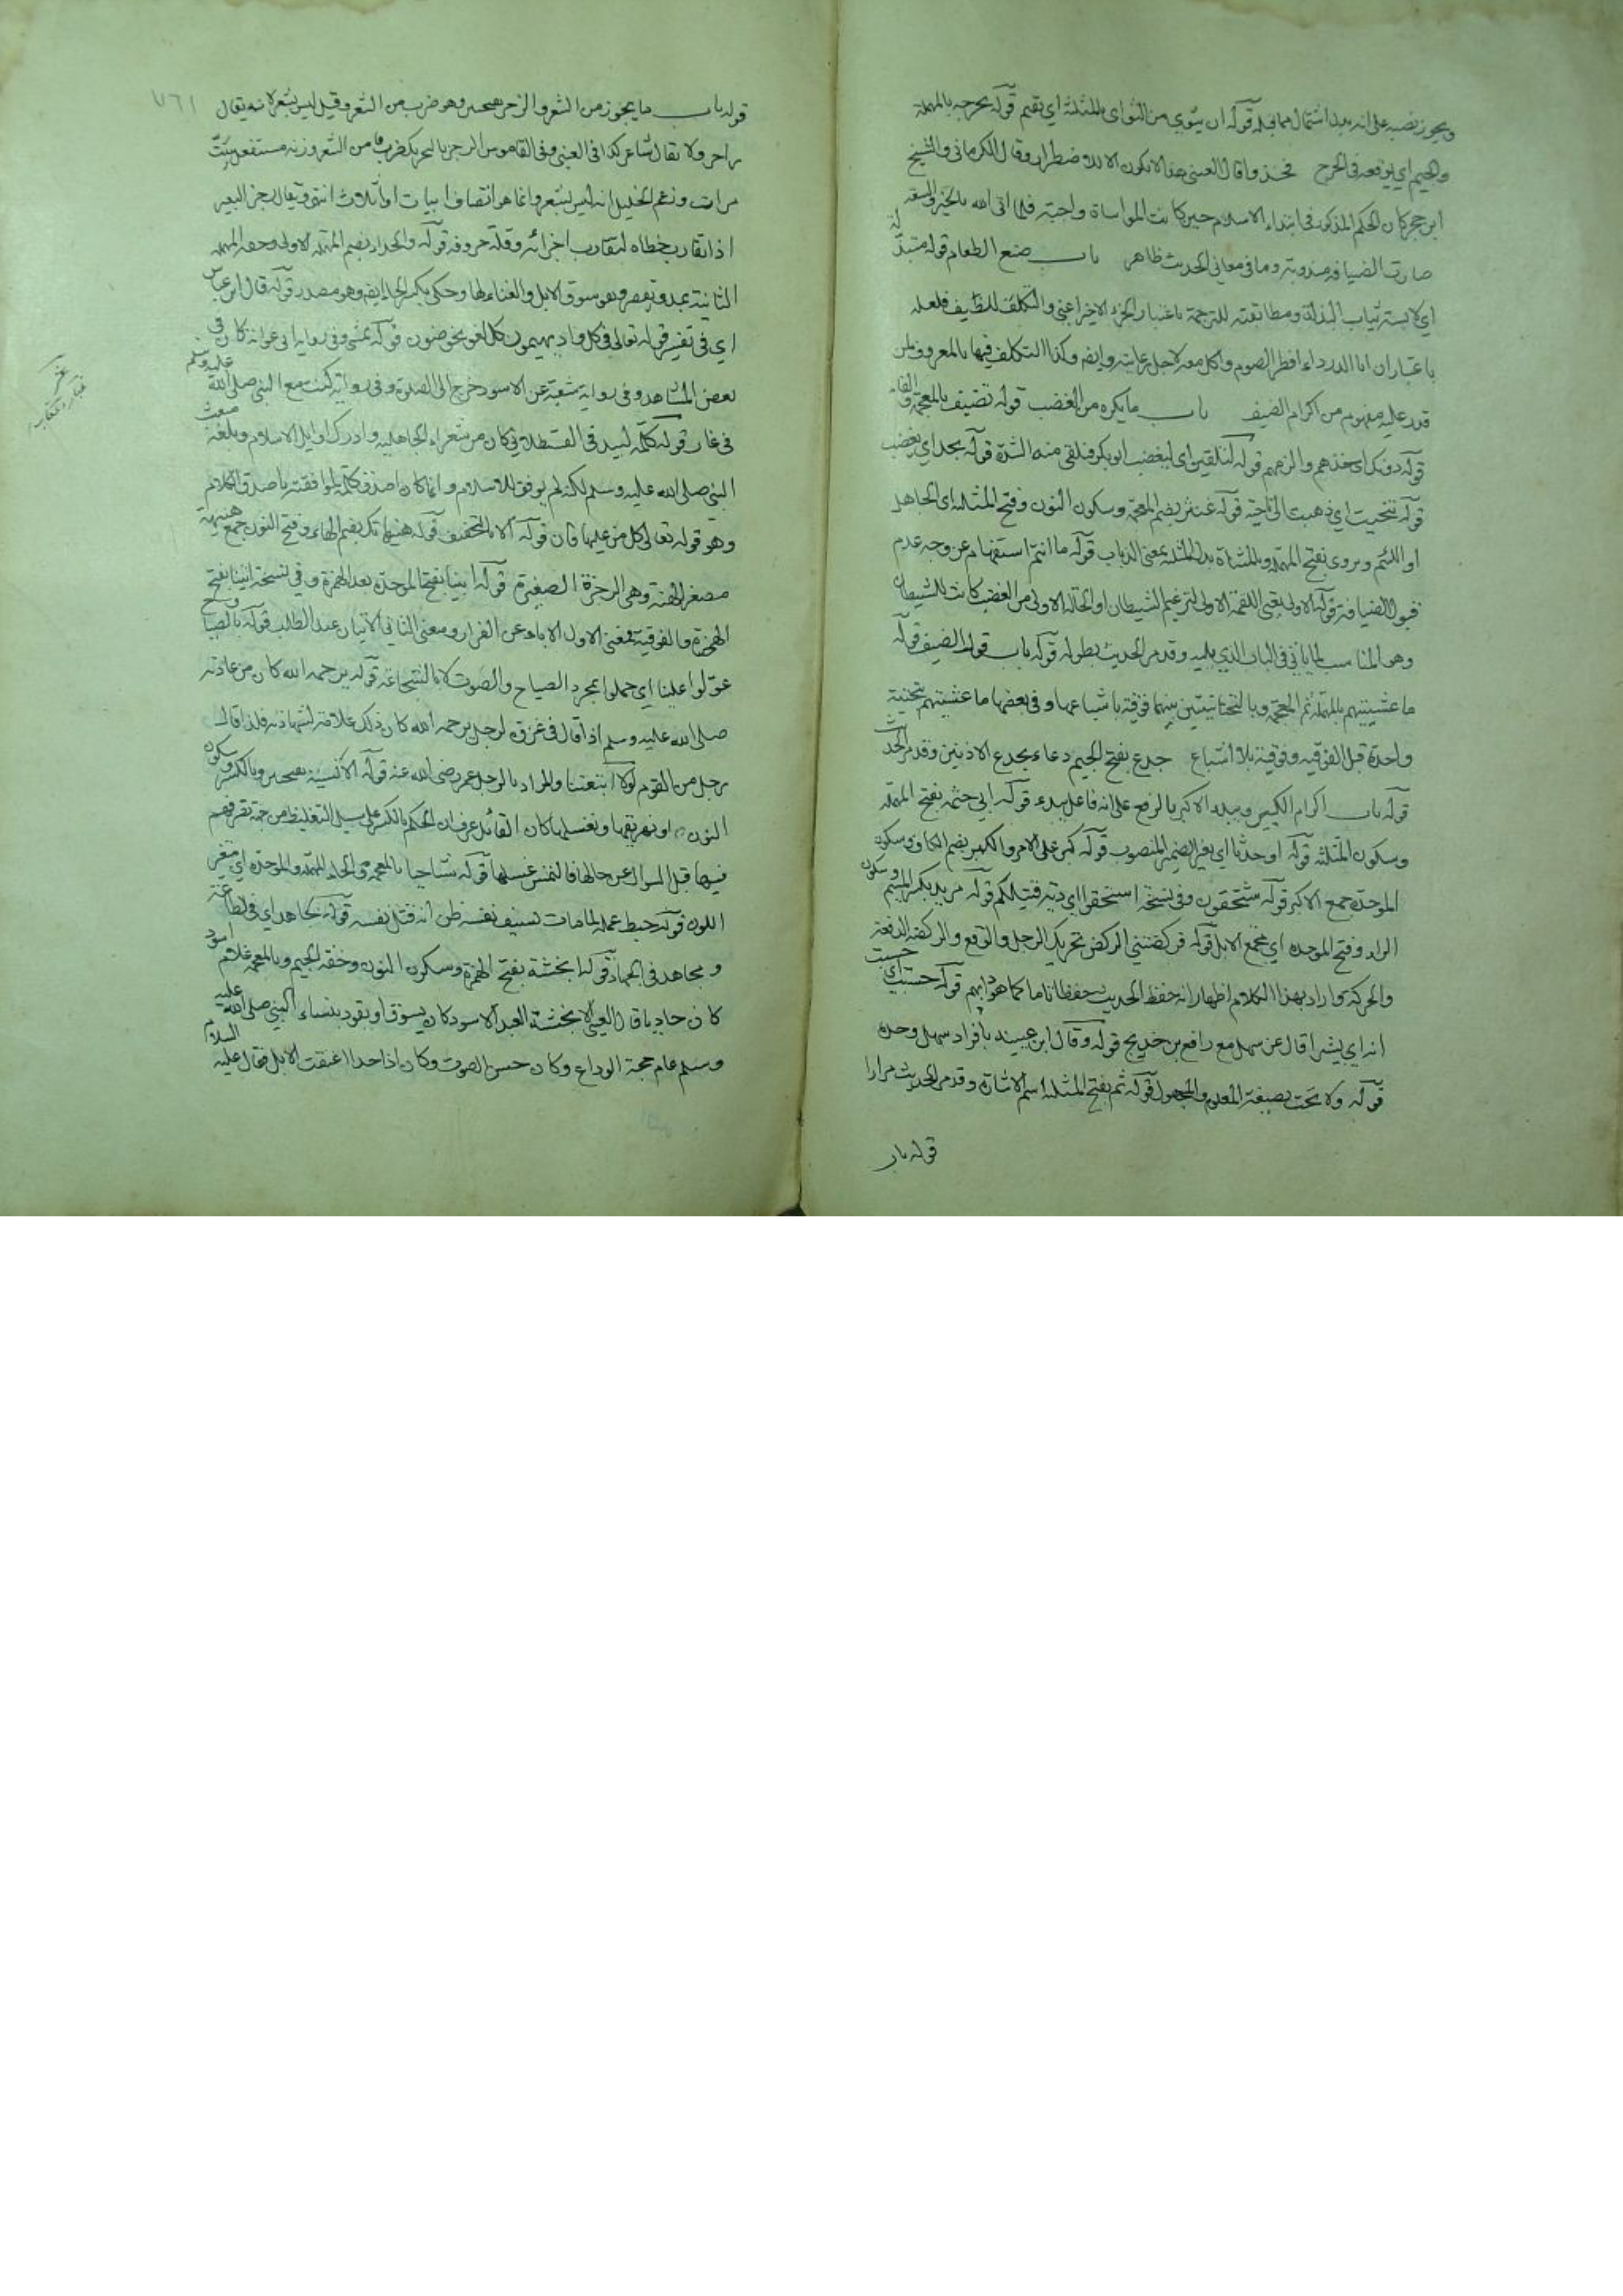 ويجوز نصبه على انه بدل اشتمال مما قبله قوله ان يثوي من الثواى بالمثلثة اي يقيم قوله يحرجه بالمهملة
والجيم اي يوقعه في الحرج فخذوا قال العيني هذا لا يكون الا للاضطرار وقال الكرماني والشيخ
ابن حجر كان الحكم المذكور في ابتداء الاسلام حين كانت المواساة واجبة فلما اتى الله بالخير والسعة
صارت الضيافة مندوبة وما في معاني الحديث ظاهر باب صنع الطعام قوله متبذلة
اي لابسة ثياب البذلة ومطابقته للترجمة باعتبار الجزء الاخير اعني والتكلف للضيف فلعله
باعتبار ان ابا الدرداء افطر الصوم واكل معه لاجل رعايته وايضا وكذا التكلف فيها بالمعروف لمن
قدر عليه مفهوم من اكرام الضيف باب ما يكره من الغضب قوله تضيف بالمعجمة والفاء
قوله دونك اي خذهم والزمهم قوله لنلقين اي ليغضب ابو بكر فنلقى منه الشدة قوله يجد اي يغضب
قوله تنحيت اي ذهبت الى ناحية قوله غنثر بضم المعجمة وسكون النون وفتح المثلثة اي الجاهل
او اللئيم ويروى بفتح المهملة وبالمثناة بدل المثلثة بمعنى الذباب قوله ما انتم استفهام عن وجه عدم
قبول الضيافة قوله الاولى يعني اللقمة الاولى لترغيم الشيطان او الحالة الاولى من الغضب كانت للشيطان
وهو المناسب لما ياتي في الباب الذي يليه وقد مر الحديث بطوله قوله باب قول الضيف قوله
ما عشيتيهم بالمهملة ثم المعجمة وبالتحتانيتين بينهما فوقية باشباعها وفي بعضها ما عشيتهم بتحتية
واحدة قبل الفوقية وفوقية بلا اشباع جدع بفتح الجيم دعاء بجدع الاذنين وقد مر الحديث
قوله باب اكرام الكبير ويبدء الاكبر بالرفع على انه فاعل يبدء قوله ابي حثمة بفتح المهملة
وسكون المثلثة قوله او حدثا اي بغير الضمير المنصوب قوله كبر على الامر والكبر بضم الكاف وسكون
الموحدة جمع الاكبر قوله تستحقون وفي نسخة استحقوا اي دية قتيلكم قوله مربد بكسر الميم وسكون
الراء وفتح الموحدة اي مجمع الابل قوله فركضتني الركض تحريك الرجل والدفع والركضة الدفعة
والحركة واراد بهذا الكلام اظهار انه حفظ الحديث حفظا تاما كما هو دابهم قوله حسبت
انه اي بشيرا قال عن سهل مع رافع بن خديج قوله وقال ابن عيينة بافراد سهل وحده
قوله ولا تحت بصيغة المعلوم والمجهول قوله ثم بفتح المثلثة اسم الاشارة وقد مر الحديث مرارا
قوله باب
٧٦١
قوله باب ما يجوز من الشعر والرجز هو ضرب من الشعر وقيل ليس بشعر لانه يقال
راجز ولا يقال شاعر كذا في العيني وفي القاموس الرجز بالتحريك ضرب من الشعر وزنه مستفعلن ست
مرات وزعم الخليل انه ليس بشعر وانما هو انصاف ابيات او اثلاث انتهى ويقال رجز البعير
اذا تقارب خطاه لتقارب اجزائه وقلة حروفه قوله والحداء بضم المهملة الاولى وخفة المهملة
الثانية يمد ويقصر وهو سوق الابل والغناء لها وحكى بكسر الحاء ايضا وهو مصدر قوله قال ابن عباس
اي في تفسير قوله تعالى في كل واد يهيمون كل لغو يخوضون قوله يمشي وفي رواية ابي عوانة كان في
بعض المشاهد وفي رواية شعبة عن الاسود خرج الى الصلوة وفي رواية كنت مع النبي صلى الله عليه وسلم
في غار قوله كلمة لبيد قال القسطلاني كان من شعراء الجاهلية وادرك اوايل الاسلام وبلغه مبعث
النبي صلى الله عليه وسلم لكنه لم يوفق للاسلام وانما كان اصدق كلمة لموافقته باصدق الكلام
وهو قوله تعالى كل من عليها فان قوله الا بالتخفيف قوله هنيهاتك بضم الهاء وفتح النون جمع هنيهة
مصغر الهنة وهي الرجزة الصغيرة قوله ابينا بفتح الموحدة بعد الهمزة وفي نسخة اتينا بفتح
الهمزة والفوقية فمعنى الاول الاباء عن الفرار ومعنى الثاني الاتيان عند الطالب قوله بالصياح
عولوا علينا اي حملوا بمجرد الصياح والصوت لا بالشجاعة قوله يرحمه الله كان من عادته
صلى الله عليه وسلم اذا قال في غزوة لرجل يرحمه الله كان ذلك علامة لشهادته فلذا قال
رجل من القوم لولا امتعتنا والمراد بالرجل عمر رضي الله عنه قوله الانسية بفتحتين وبالكسر وسكون
النون او نهريقها ونغسلها كان القائل عرف ان الحكم بالكسر على سبيل التغليظ من جهة تفريقهم
فيها قبل السوال عن حالها فالتمس غسلها قوله شاحبا بالمعجمة والحاء المهملة والموحدة اي متغير
اللون قوله حبط عمله لما مات بسيف نفسه ظن انه قتل نفسه قوله لجاهد اي في طاعته
ومجاهد في الجهاد قوله انجشة بفتح الهمزة وسكون النون وخفة الجيم وبالمعجمة غلام اسود
كان حاديا قال العيني الانجشة العبد الاسود كان يسوق او يقود بنساء النبي صلى الله عليه
وسلم عام حجة الوداع وكان حسن الصوت وكان اذا حدا اعنقت الابل فقال عليه السلام